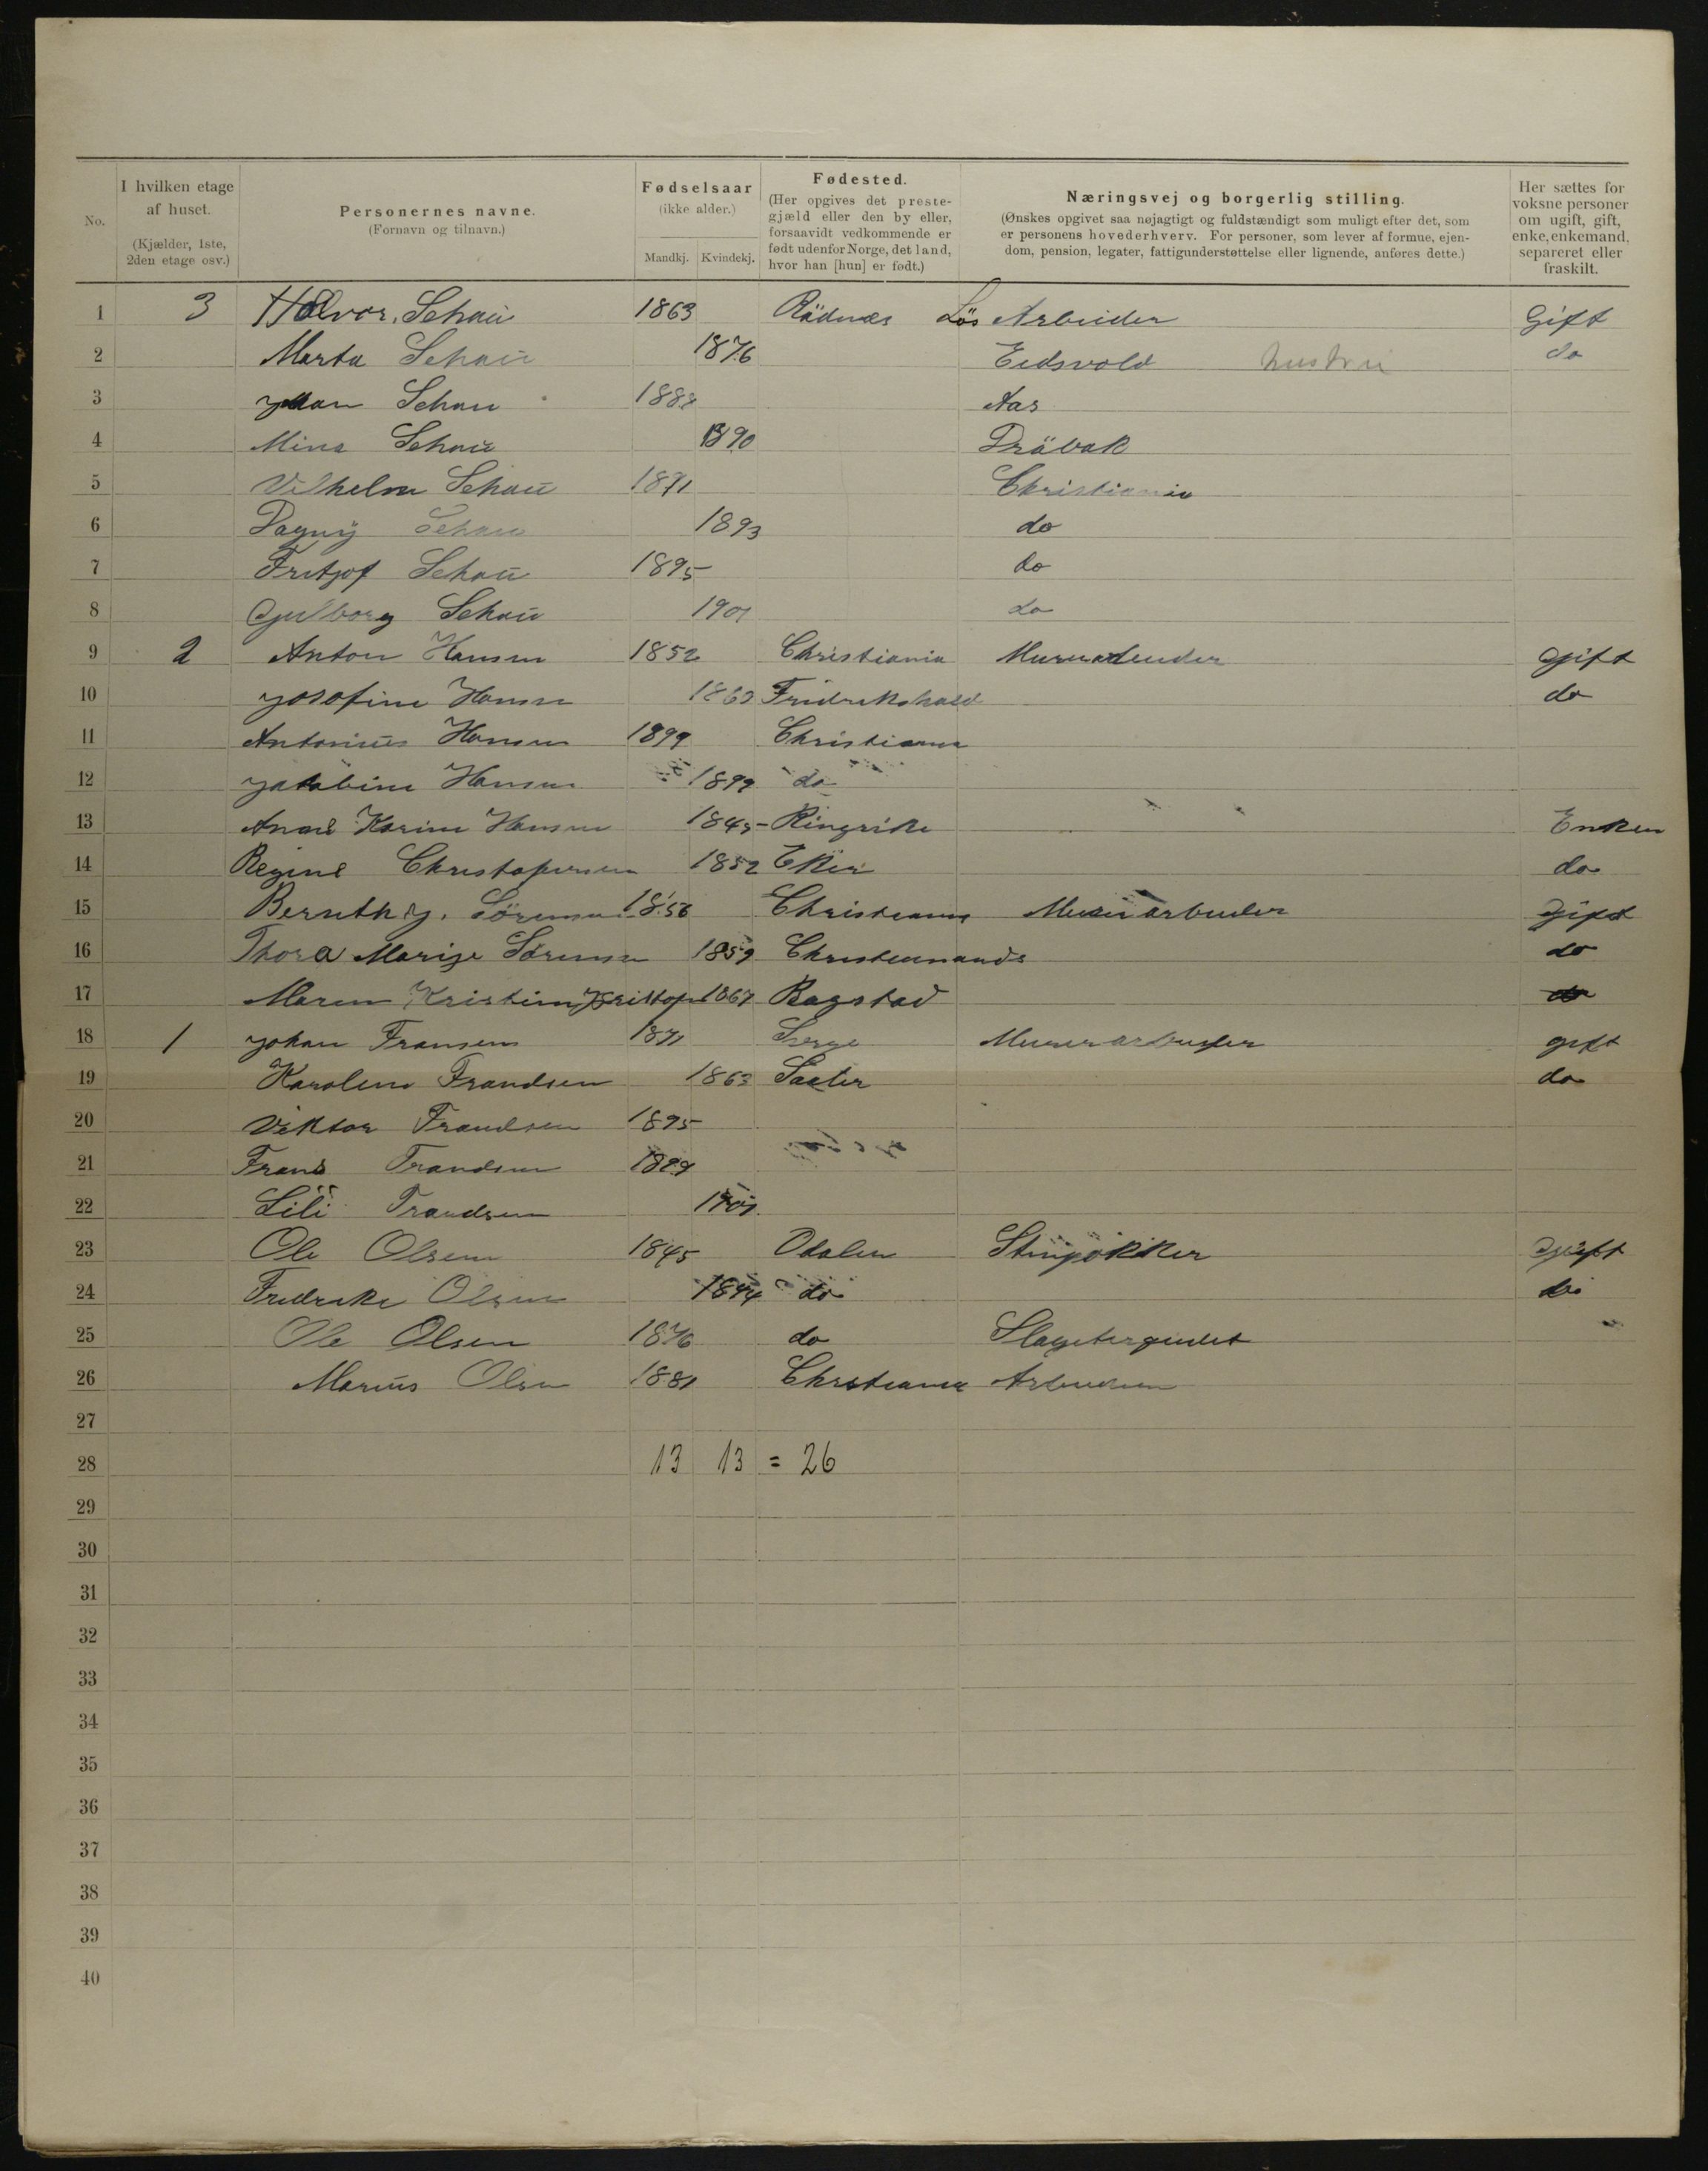 No.
I hvilken etage af huset. (Kjælder, 1ste, 2den etage osv.)
Personernes navne. (Fornavn og tilnavn.)
Fødselsaar (ikke alder.)
Mandkj. Kvindekj.
Fødested. (Her opgives det prestegjæld eller den by eller, forsaavidt vedkommende er født udenfor Norge, det land, hvor han [hun] er født.)
Næringsvej og borgerlig stilling. (Ønskes opgivet saa nøjagtigt og fuldstændigt som muligt efter det, som er personens hovederhverv. For personer, som lever af formue, ejendom, pension, legater, fattigunderstøttelse eller lignende, anføres dette.)
Her sættes for voksne personer om ugift, gift, enke, enkemand, separeret eller fraskilt.
1 3 Halvor. Schau 1863 Rädnæs Løs Arbeider Gift
2 Marta Schau 1876 Eidsvold hustru do
3 Schau 1888 Aas
4 Mina Schau 1890 Dräbak
5 Vilhelm Schau 1871 Christiania
6 Dagny Schau 1893 do
7 Fritjof Schau 1895 do
8 Schau 1901 do
9 2 Anton Hansen 1852 Christiania gift
10 Josofine Hansen 1863 Fridrikshald do
11 Antonius Hansen 1899 Christiania
12 Jakobine Hansen 1899 do
13 Anne Karine Hansen 1845 Ringrike Enken
14 Regine Christopersen 1852 Eker do
15 Bernth. J. Sörensen 1856 Christiania Murerarbeider Gift
16 Thora Marije Sörensen 1859 Christiansands do
17 Maren Kristine Kristop 1867 Ragstad do
18 1 Johan Fransens 1871 Murerarbeider gift
19 Karoline Frandsen 1863 Saeter do
20 Viktor Frandsen 1895
21 Frans Frandsen 1899
22 Lili Frandsen 1901
23 Ole Olsen 1845 Odalen Gift
24 Fredrike Olsen 1844 do do
25 Ole Olsen 1876 do
26 Marius Olsen 1881 Christiania Arbeider
27
28 13 13 = 26
29
30
31
32
33
34
35
36
37
38
39
40